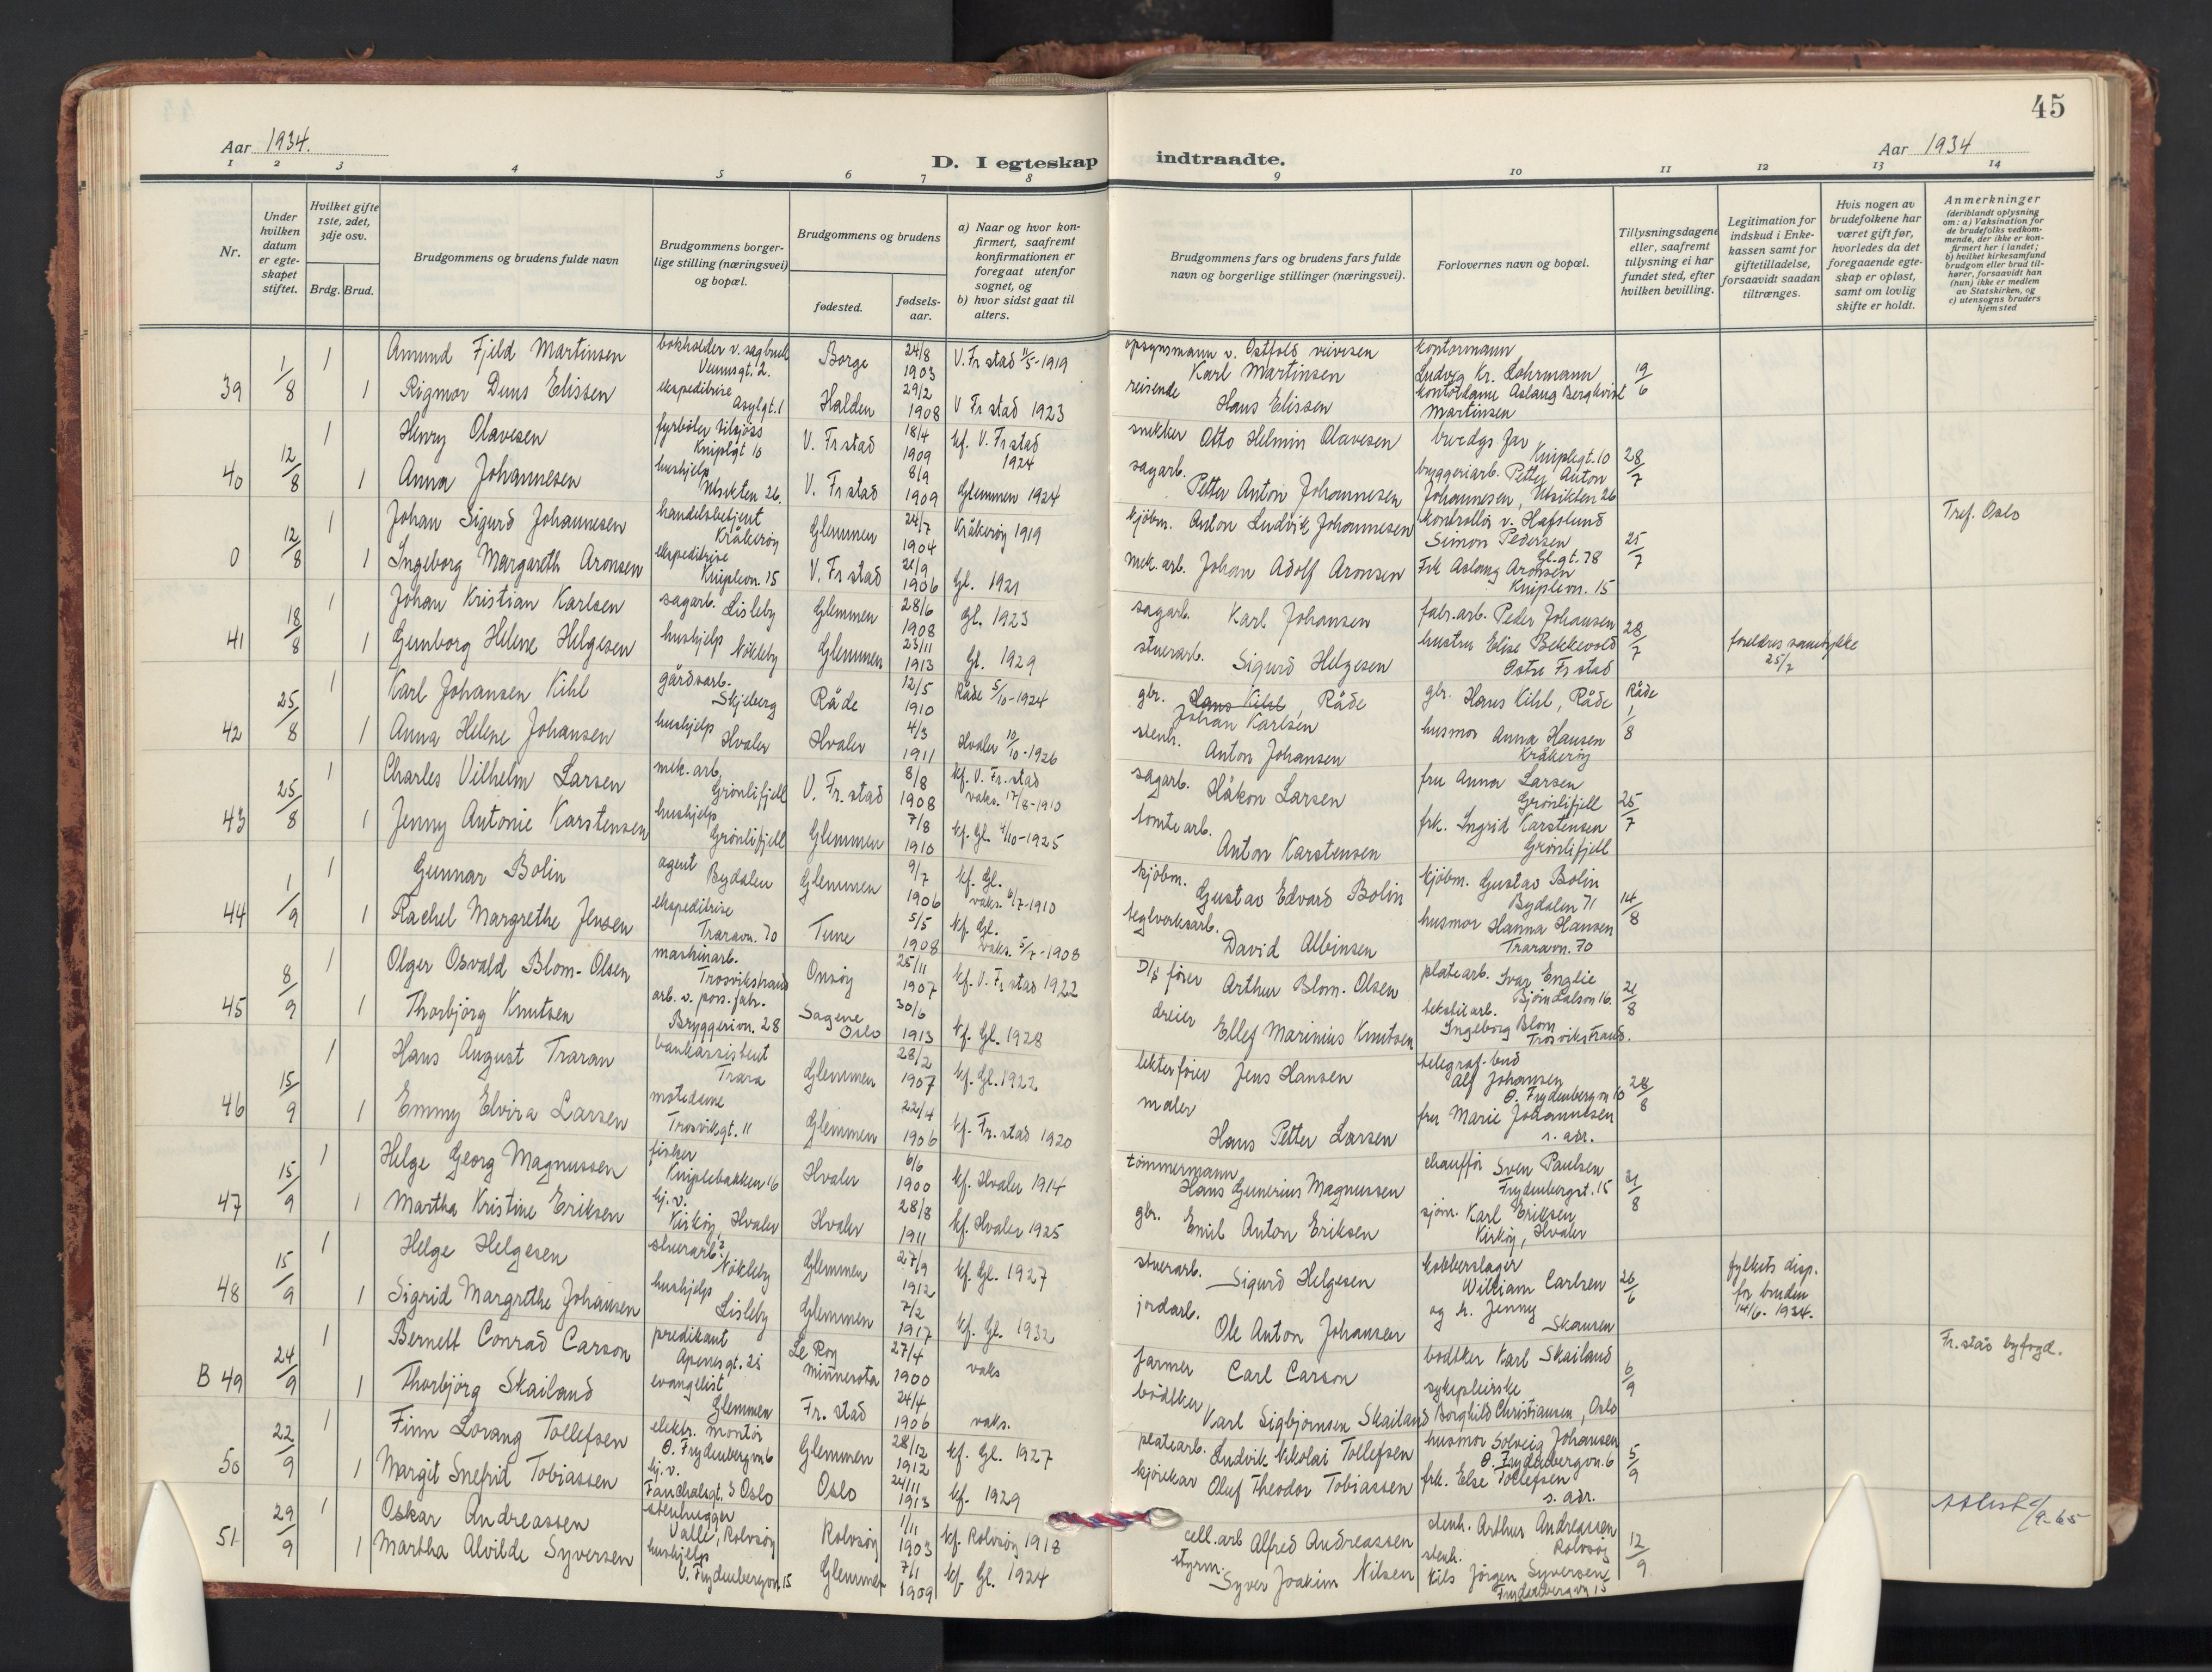 45
Aar 1934.
D. I egteskap indtraadte.
Aar 1934
1 2 3 4 5 6 7 8 9 10 11 12 13 14
Nr.
Under hvilken datum er egteskapet stiftet.
Hvilket gifte 1ste, 2det, 3dje osv.
Brdg. Brud.
Brudgommens og brudens fulde navn
Brudgommens borgerlige stilling (næringsvei) og bopæl.
Brudgommens og brudens
fødested.
fødselsaar.
a) Naar og hvor konfirmert, saafremt konfirmationen er foregaat utenfor sognet, og
b) hvor sidst gaat til alters.
Brudgommens fars og brudens fars fulde navn og borgerlige stillinger (næringsvei).
Forlovernes navn og bopæl.
Tillysningsdagene eller, saafremt tillysning ei har fundet sted, efter hvilken bevilling.
Legitimation for indskud i Enkekassen samt for giftetilladelse, forsaavidt saadan tiltrænges.
Hvis nogen av brudefolkene har været gift før, hvorledes da det foregaaende egteskap er opløst, samt om lovlig skifte er holdt.
Anmerkninger
(deriblandt oplysning om: a) Vaksination for de brudefolks vedkommende, der ikke er konfirmert her i landet; b) hvilket kirkesamfund brudgom eller brud tilhører, forsaavidt han (hun) ikke er medlem av Statskirken, og c) utensogns bruders hjemsted
39 1/8 1 Amund Fjeld Martinsen bokholder v. sagbruk Venusgt. 2. Borge 24/8 1903 V. Fr stad 11/5-1919 opsynsmann v. Østfold veivesen Karl Martinsen kontormann Ludvig Kr. Lohrmann 19/6
1 Rigmor Duus Elissen ekspeditrise Asylgt. 1 Halden 29/2 1908 V Fr stad 1923 reisende Hans Elissen kontordame Aslaug Bergkvist Martinsen
40 12/8 1 Henry Olavesen fyrbøter tilsjøss Kniplgt 10 V. Fr stad 18/4 1909 kf. V. Fr stad 1924 snekker Otto Helmin Olavesen brudgs far Kniplegt. 10 28/7
1 Anna Johannesen hushjelp Utsikten 26. V. Fr stad 8/9 1909 Glemmen 1924 sagarb. Petter Anton Johannesen bryggeriarb. Petter Anton Johannesen, Utsikten 26
0 12/8 1 Johan Sigurd Johannesen handelsbetjent Kråkerøy Glemmen 24/7 1904 Kråkerøy 1919 kjøbm. Anton Ludvik Johannesen kontrollør v. Hafslund Simon Pedersen Gl.gt. 78 25/7 Tref. Oslo
1 Ingeborg Margareth Aronsen ekspeditrise Kniplevn. 15 V. Fr stad 21/9 1906 Gl. 1921 mek. arb. Johan Adolf Aronsen Frk Aslaug Aronsen Kniplevn. 15
41 18/8 1 Johan Kristian Karlsen sagarb. Lisleby Glemmen 28/6 1908 Gl. 1923 sagarb. Karl Johansen fabr.arb. Peder Johansen 28/7 foreldres samtykke 25/7
1 Gunborg Helene Helgesen hushjelp Nøkleby Glemmen 23/11 1913 Gl. 1929 stuerarb. Sigurd Helgesen hustru Elise Bekkevold Østre Fr stad
42 25/8 1 Karl Johansen Kihl gårdsarb. Skjeberg Råde 12/5 1910 Råde 5/10-1924 gbr. Hans Kihl, Råde Johan Karlsen gbr. Hans Kihl, Råde Råde 1/8
1 Anna Helene Johansen hushjelp Hvaler Hvaler 4/3 1911 Hvaler 10/10-1926 stenh. Anton Johansen husmor Anna Hansen Kråkerøy
43 25/8 1 Charles Vilhelm Larsen mek. arb. Grønlifjell V. Fr. stad 8/8 1908 kf. V. Fr. stad vaks. 17/8-1910 sagarb. Håkon Larsen fru Anna Larsen Grønlifjell 25/7
1 Jenny Antonie Karstensen hushjelp Grønlifjell Glemmen 7/8 1910 kf. Gl. 4/10-1925 tomtearb. Anton Karstensen frk. Ingrid Karstensen Grønlifjell
44 1/9 1 Gunnar Bolin agent Bydalen Glemmen 9/7 1906 kf. Gl. vaks. 6/7-1910 kjøbm. Gustav Edvard Bolin kjøbm. Gustav Bolin Bydalen 71 14/8
1 Rachel Margrethe Jensen ekspeditrise Traravn. 70 Tune 5/5 1908 kf. Gl. vaks. 5/7-1908 teglverksarb. David Albinsen husmor Hanna Hansen Traravn. 70
45 8/9 1 Olger Osvald Blom-Olsen maskinarb. Trosvikstrand Onsøy 25/11 1907 kf. V. Fr stad 1922 D/s fører Arthur Blom-Olsen platearb. Ivar Englie Bjørndalson 16. 21/8
1 Thorbjørg Knutsen arb. v. pors. fabr. Bryggerivn. 28 Sagene Oslo 30/6 1913 kf. Gl. 1928 dreier Ellef Marinius Knutsen tekstilarb. Ingeborg Blom Trosvikstrand.
46 15/9 1 Hans August Traran bankassistent Trara Glemmen 28/2 1907 kf. Gl. 1922 lekterfører Jens Hansen telegraf-bud Alf Johansen Ø. Frydenbergvn 10 28/8
1 Emmy Elvira Larsen motedame Trosviksgt. 11 Glemmen 22/4 1906 kf. Fr. stad 1920 maler Hans Petter Larsen fru Marie Johannesen s. adr.
47 15/9 1 Helge Georg Magnussen fisker Kniplebakken 16 Hvaler 6/6 1900 kf. Hvaler 1914 tømmermann Hans Gunerius Magnussen chauffør Sven Paulsen Frydenbergt. 15 31/8
1 Martha Kristine Eriksen hj. v. Kirkøy, Hvaler Hvaler 28/8 1911 kf. Hvaler 1925 gbr. Emil Anton Eriksen sjøm. Karl Eriksen Kirkøy, Hvaler
48 15/9 1 Helge Helgesen stuerarb. Nøkleby Glemmen 27/9 1912 kf. Gl. 1927 stuerarb. Sigurd Helgesen kobberslager William Carlsen 26/6 fylkets disp. for bruden 14/6-1934.
1 Sigrid Margrethe Johansen hushjelp Lisleby Glemmen 7/2 1917 kf. Gl. 1932 jordarb. Ole Anton Johansen og h. Jenny Skansen
B 49 24/9 1 Bernett Conrad Carson predikant Apenesgt. 25 Le Roy Minnesota 27/4 1900 vaks farmer Carl Carson bødtker Karl Skailand 6/9 Fr. stad byfogd.
1 Thorbjørg Skailand evangelist Glemmen Fr. stad 24/4 1906 vaks. bødtker Karl Sigbjørnsen Skailand sykepleierske Borghild Christiansen, Oslo
50 22/9 1 Finn Lorang Tollefsen elektr. montør Ø. Frydenbergvn 6 Glemmen 28/12 1912 kf. Gl. 1927 platearb. Ludvik Nikolai Tollefsen husmor Solveig Johansen Ø. Frydenbergvn. 6 5/9
1 Margit Snefrid Tobiassen hj. v. Fauchaldsgt. 3 Oslo Oslo 24/11 1913 kf. 1929 kjørekar Oluf Theodor Tobiassen frk. Else Tollefsen s. adr.
51 29/9 1 Oskar Andreassen stenhugger Valle, Rolvsøy Rolvsøy 1/11 1903 kf. Rolvsøy 1918 cell. arb Alfred Andreassen stenh. Arthur Andreassen Rolvsøy 12/9
1 Martha Alvilde Syversen hushjelp V. Frydenbergvn. 15 Glemmen 7/11 1909 kf. Gl. 1924 styrm. Syver Joakim Nilsen stenh. Nils Jørgen Syversen Frydenbergvn 15